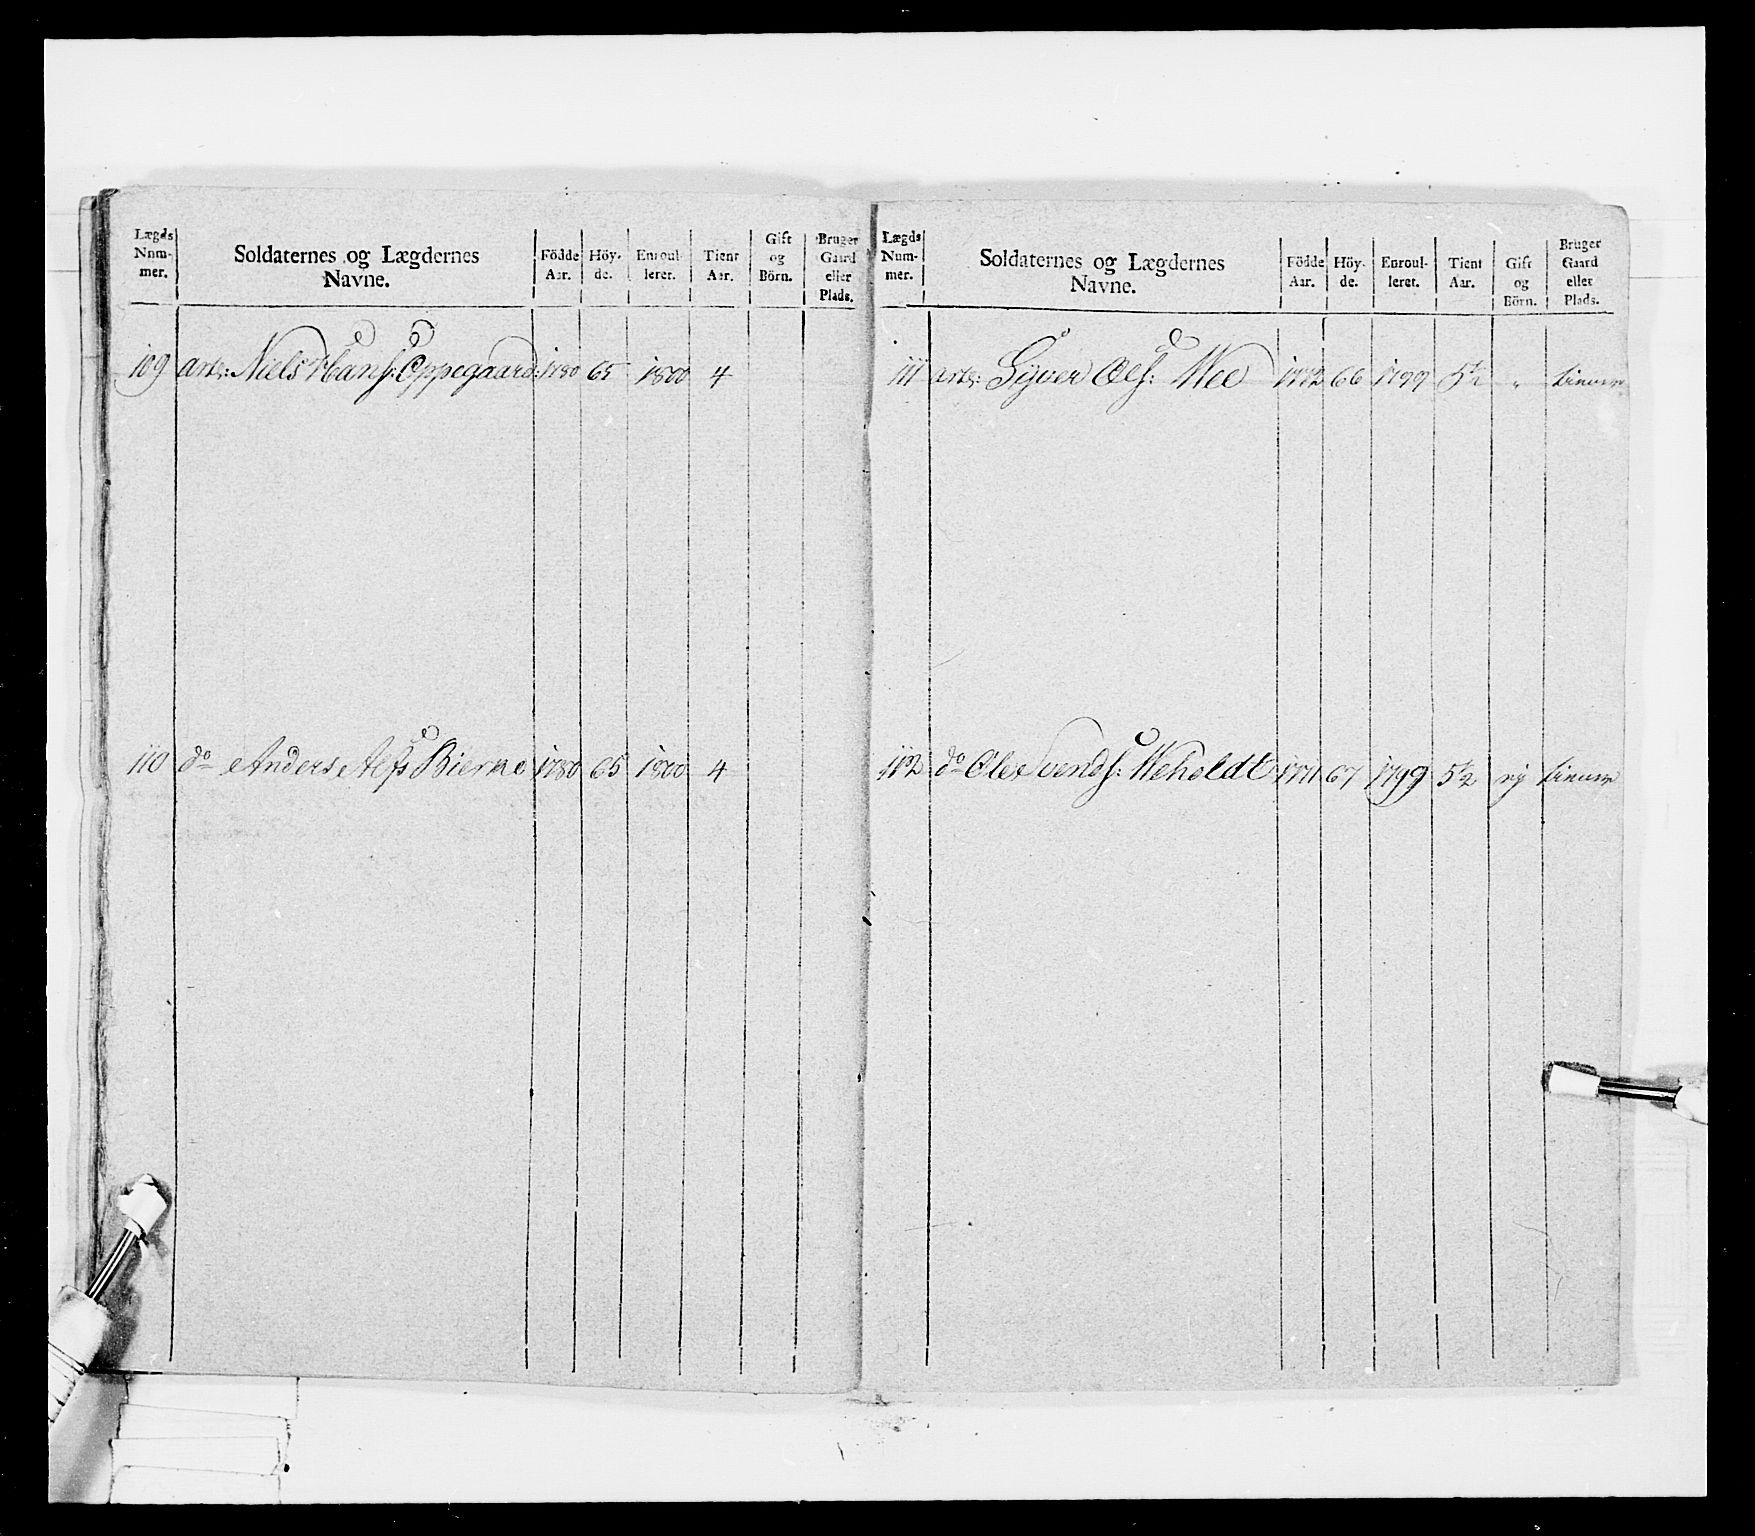 Lægds Num- mer. Soldaternes og Lægdernes Navne. Födde Aar. Höy- de. Enroul- leret. Tient Aar. Gift og Börn. Bruger Gaard eller Plads.
109 arts: Niels Hans: Oppegaard: 1780 65 1800 4
110 do Anders Alfs Bierne 1780 65 1800 4
Lægds Num- mer. Soldaternes og Lægdernes Navne. Födde Aar. Höy- de. Enroul- leret. Tient Aar. Gift og Börn. Bruger Gaard eller Plads.
111 arts: Syver Ols: Wee 1772 66 1799 5½ " tiener
112 do Ole Svends: Weholdt 1771 67 1799 5½ tiener